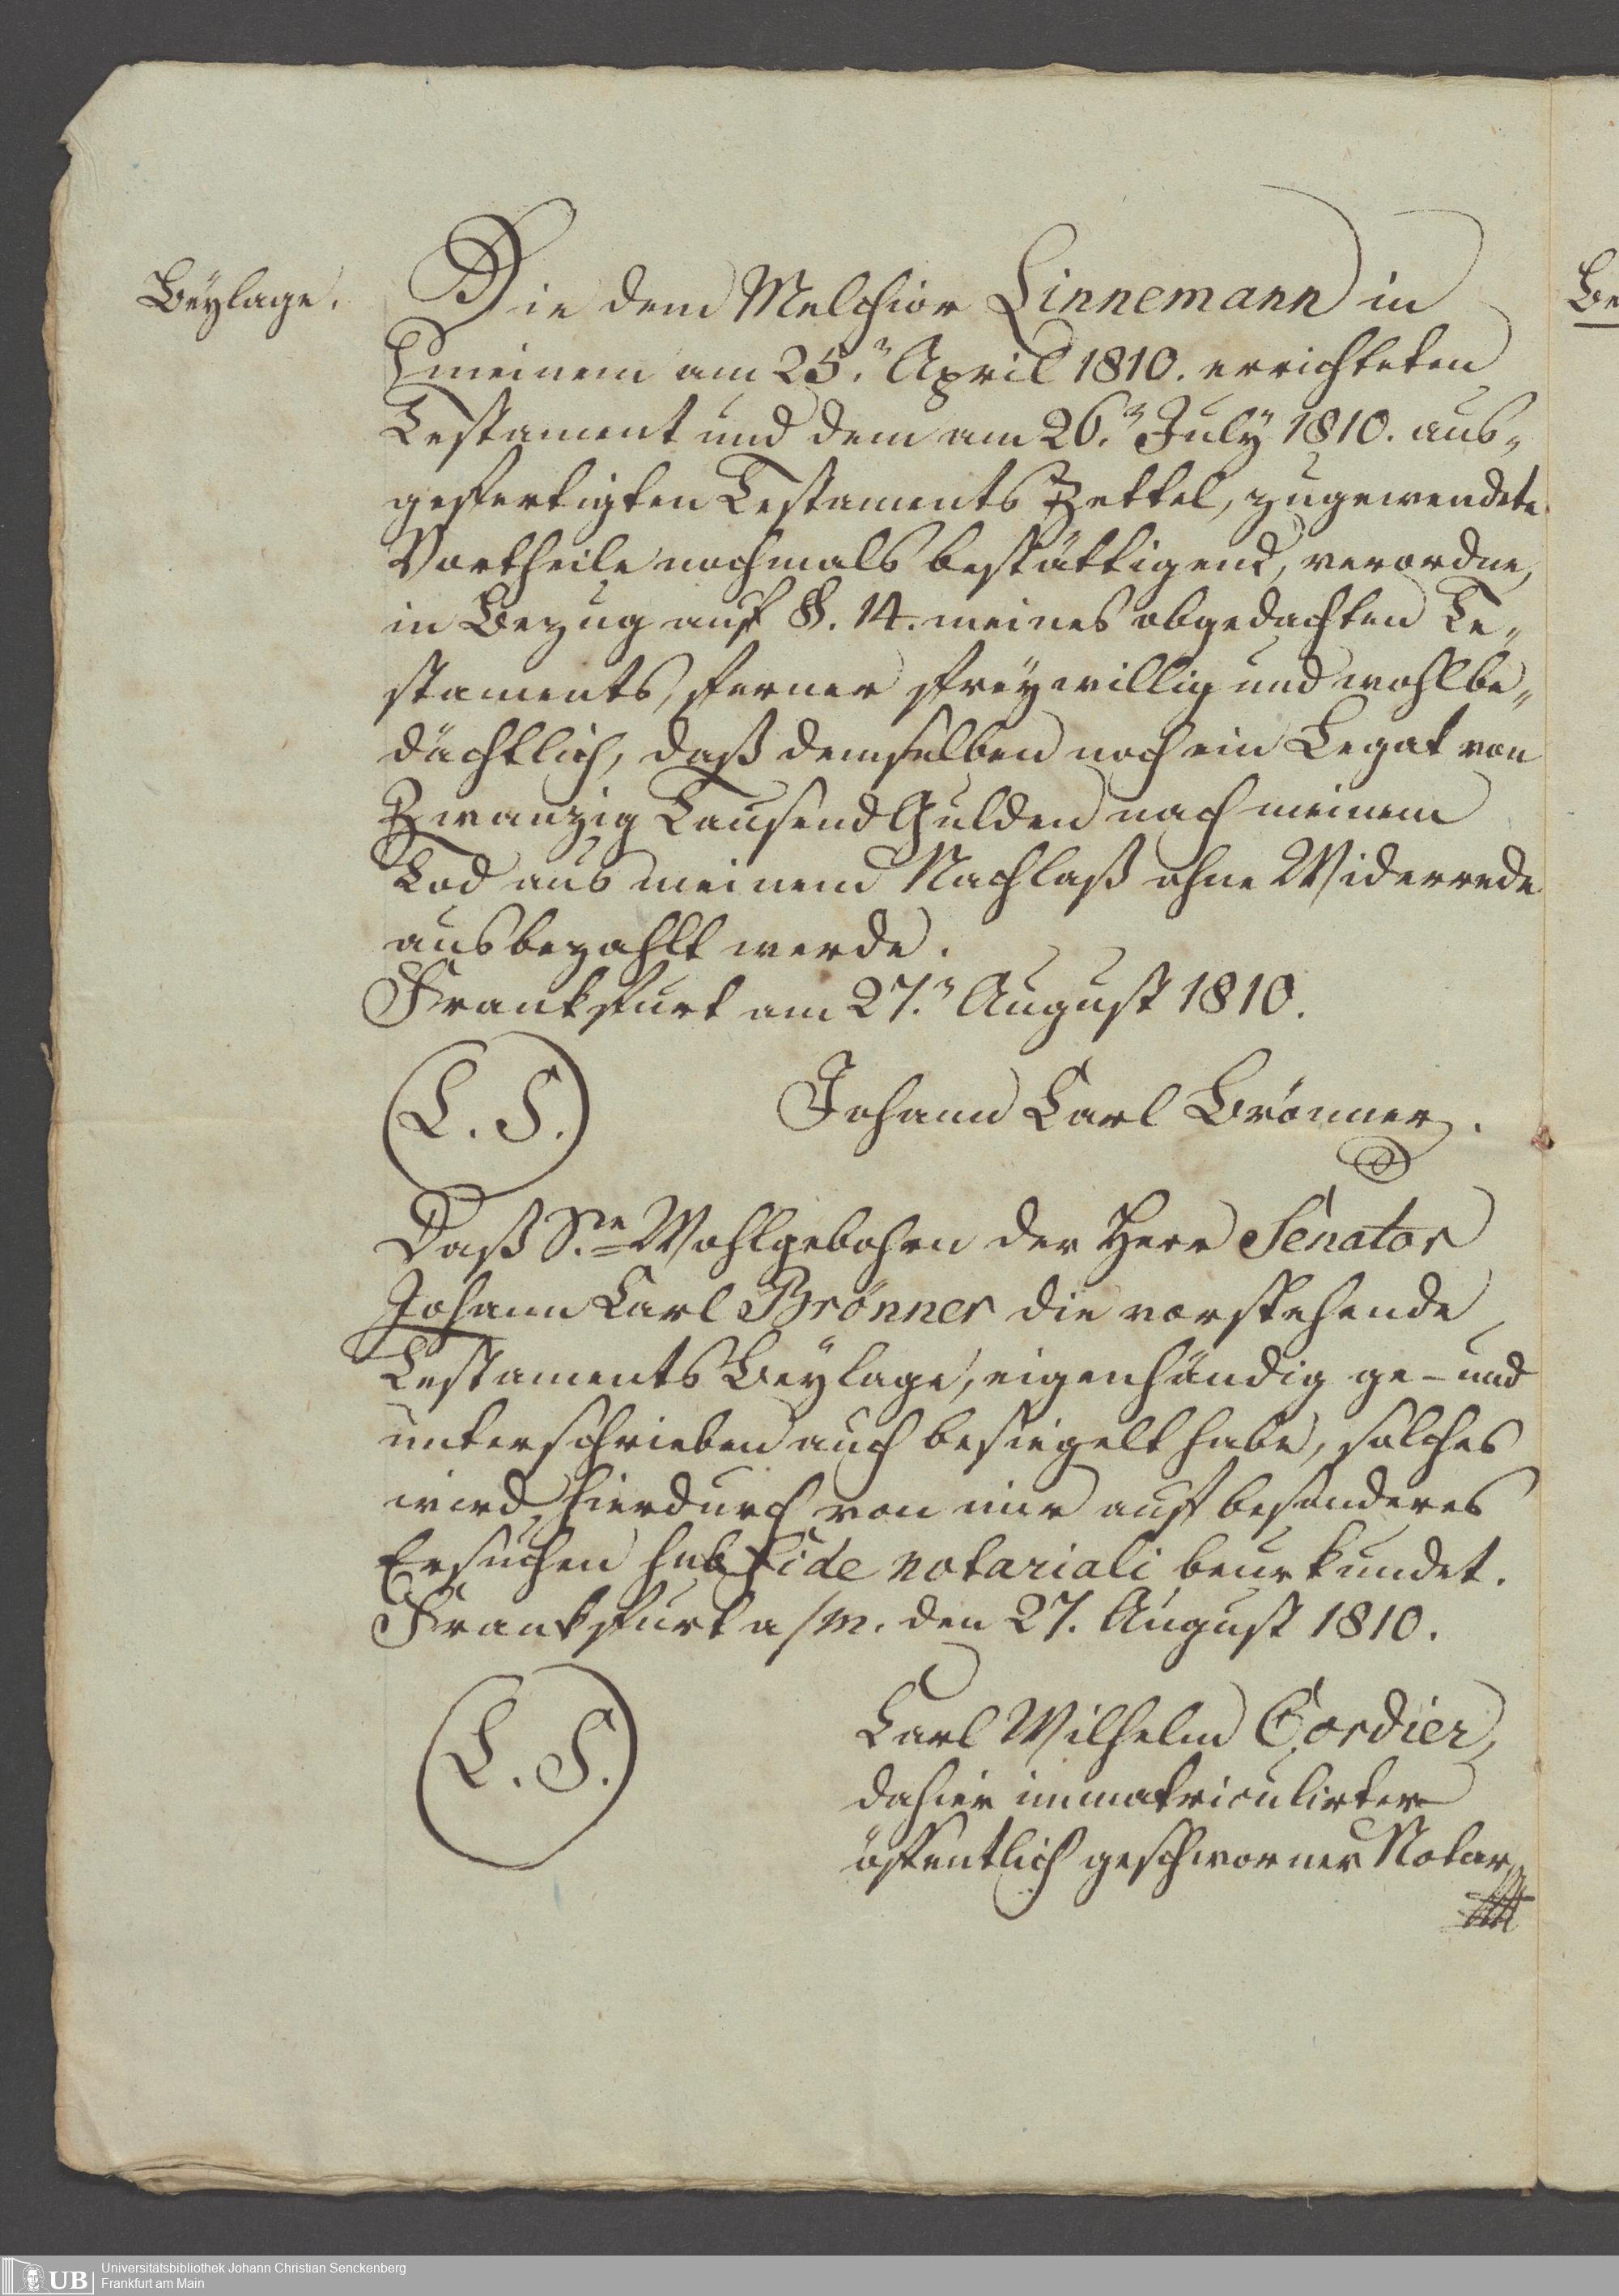 Beylage.
Die dem Melchior Linnemann in
meinem am 25.n April 1810. errichteten
Testament und dem am 26.n July 1810. aus„
gefertigten Testaments Zettel, zugewendete
Vortheile nochmals bestättigend, verordne,
in Bezug auf §. 14. meines obgedachten Te„
staments, ferner freywillig und wohlbe„
dächtlich, daß demselben noch ein Legat von
Zwanzig Tausend Gulden nach meinem
Tod aus meinem Nachlaß ohne Widerrede
ausbezahlt werde.
Frankfurt am 27.n August 1810.
L. S.
Johann Carl Brönner.
Daß S.re Wohlgebohrn der Herr Senator
Johann Carl Brönner die vorstehende
Testaments Beylage, eigenhändig ge- und
unterschrieben auch besiegelt habe, solches
wird hierdurch von mir auf besonderes
Ersuchen sub fide notariali beurkundet.
Frankfurt a/m. den 27. August 1810.
L. S.
Carl Wilhelm Cordier,
dahier immatriculirter
öffentlich geschworner Notar
Be
UB
Universitätsbibliothek Johann Christian Senckenberg
Frankfurt am Main